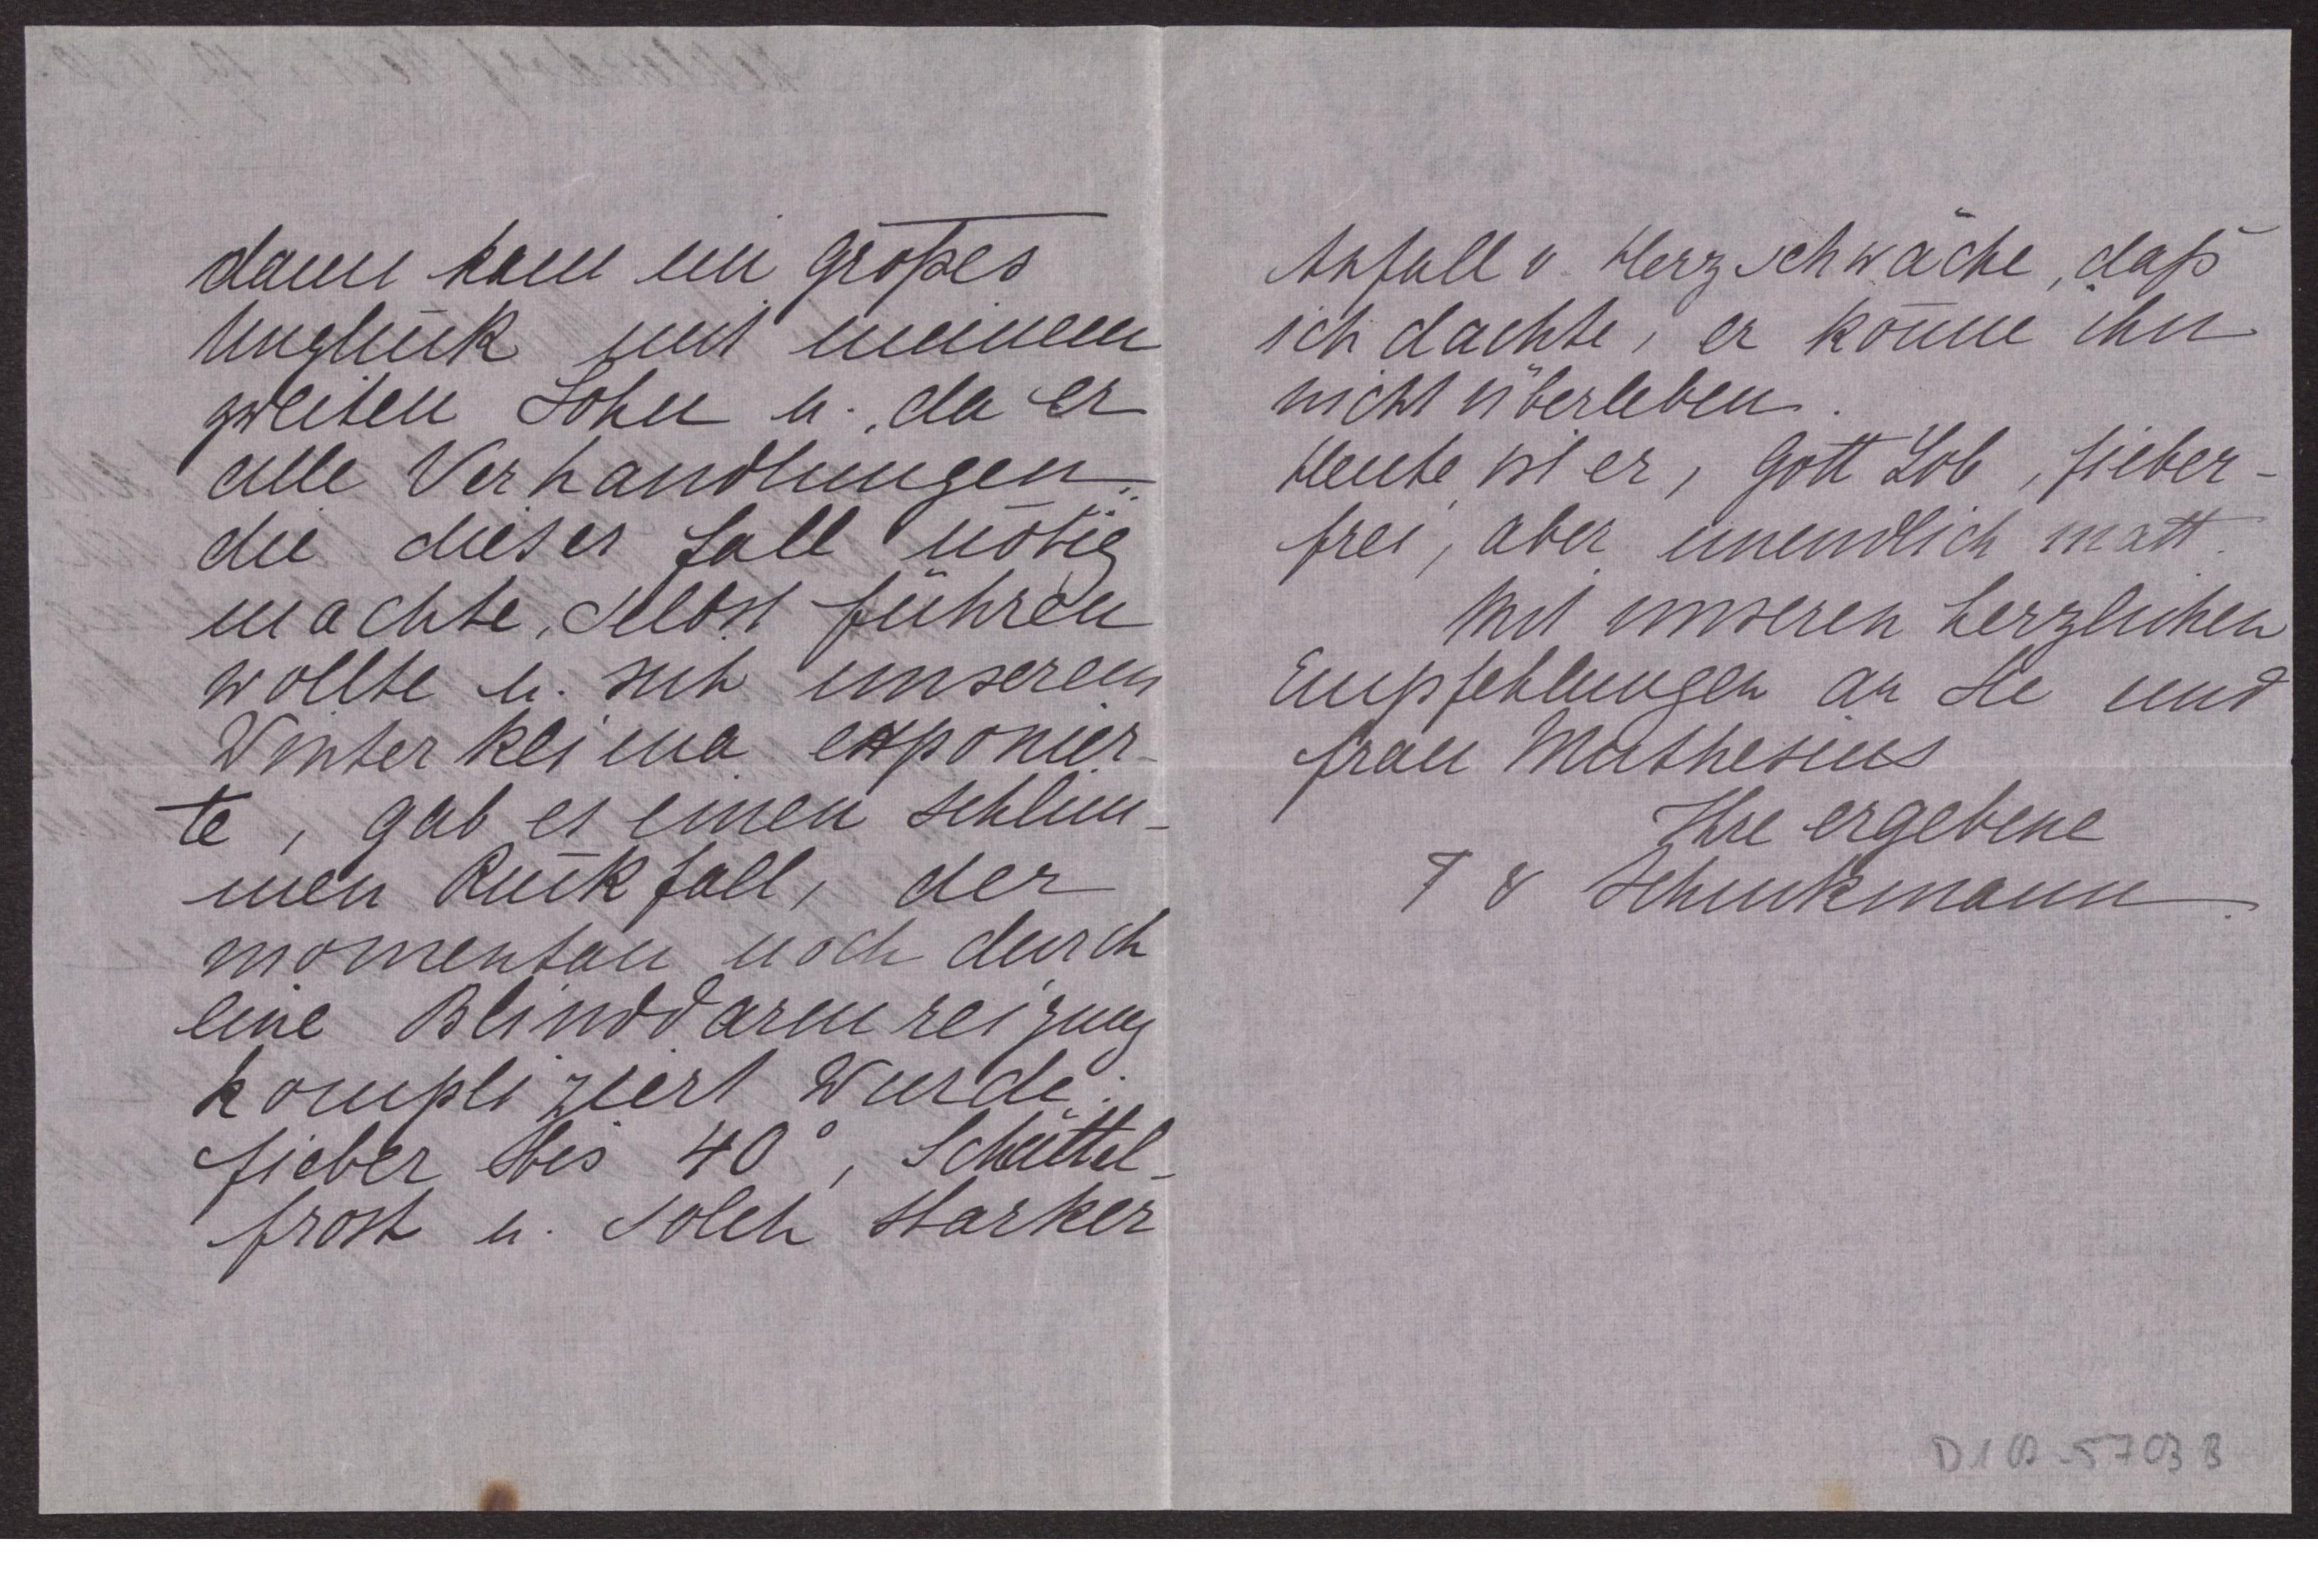 dann kam ein großes
Unglück mit meinem
zweiten Sohn u. da er
alle Verhandlungen,
die dieser Fall nötig
machte, selbst führen
wollte u. sich unserem
Winterklima exponier-
te, gab es einen schlim-
men Rückfall, der
momentan noch durch
eine Blinddarmreizung
kompliziert wurde.
Fieber bis 40°, Schüttel-
frost u. solch starker
Anfall v. Herzschwäche, daß
ich dachte, er könne ihn
nicht überleben.
Heute ist er, Gott Lob, fieber-
frei, aber unendlich matt.
Mit unseren herzlichen
Empfehlungen an Sie und
Frau Muthesius
Ihre ergebene
T v Schinkmann.